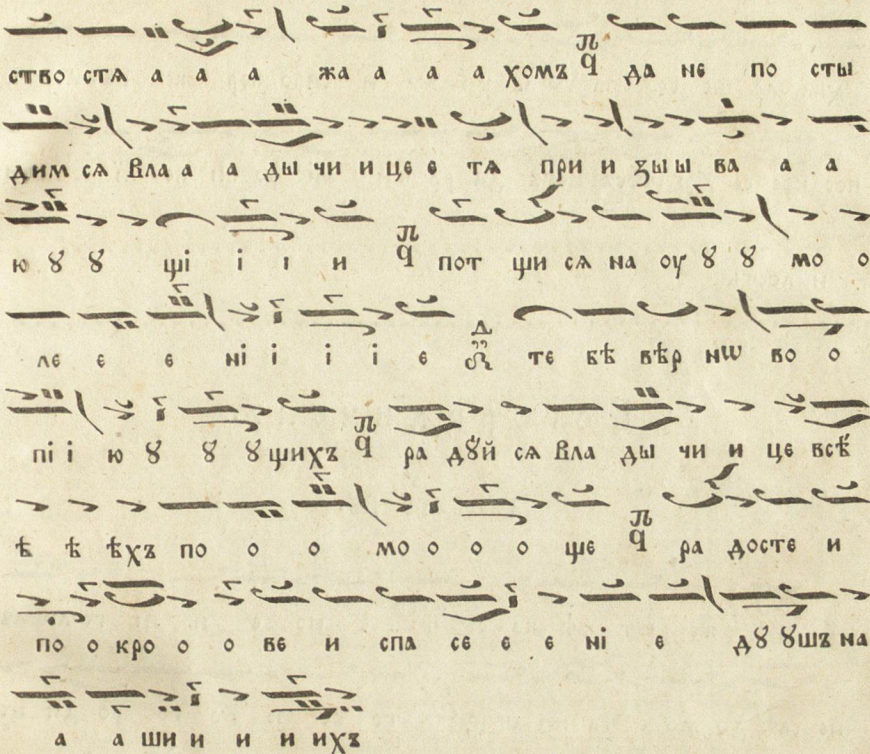 ство стѧ а а а жа а а а хомъ да не по сты
дим сѧ Вла а а ды чи и це е тѧ при и зы ы ва а а
ю ꙋ ꙋ щі і і и пот щи сѧ на оу ꙋ ꙋ мо о
ле е е ні і і і е те бѣ вѣр нѡ во о
пі і ю ꙋ ꙋ ꙋ щихъ ра дꙋй сѧ Вла ды чи и це всѣ
ѣ ѣ ѣхъ по о о мо о о о ще ра досте и
по о кро о о ве и спа се е е ні е дꙋ ꙋшъ на
а а ши и и и ихъ